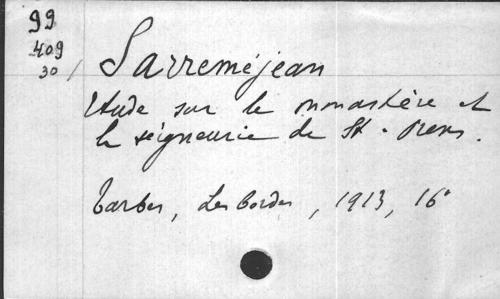 99
409
30 /
Sarreméjean
Etude sur le monastère et
la seigneurie de St-Orens.
Tarbes, Lesbordes, 1913, 16°